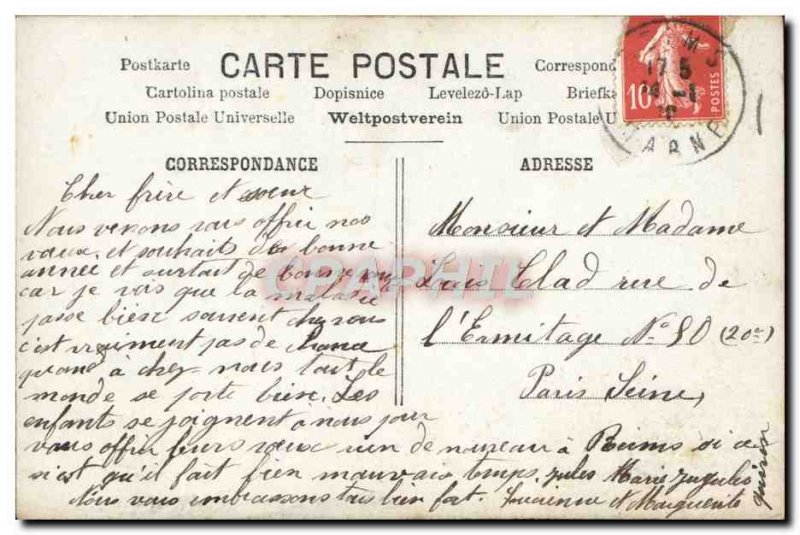 Postkarte CARTE POSTALE Correspond
Cartolina postale Dopisnice Levelezö-Lap Briefka
Union Postale Universelle Weltpostverein Union Postale U
10
POSTES
17 5
MARNE
CORRESPONDANCE
Cher frère et soeur
Nous venons vous offrir nos
voeux et souhaits de bonne
année et surtout de bonne
car je vois que la maladie
passe bien souvent chez vous
c'est vraiment pas de chance
quand à chez nous tout le
monde se porte bien. Les
enfants se joignent à nous pour
vous offrir leurs voeux rien de nouveau à Reims si ce
n'est qu'il fait bien mauvais temps. Jules Marie
Nous vous embrassons tous bien fort. Lucienne et Marguerite
ADRESSE
Monsieur et Madame
Louis Clad rue de
l'Ermitage N° 80 (20e)
Paris Seine
CPAPHIL